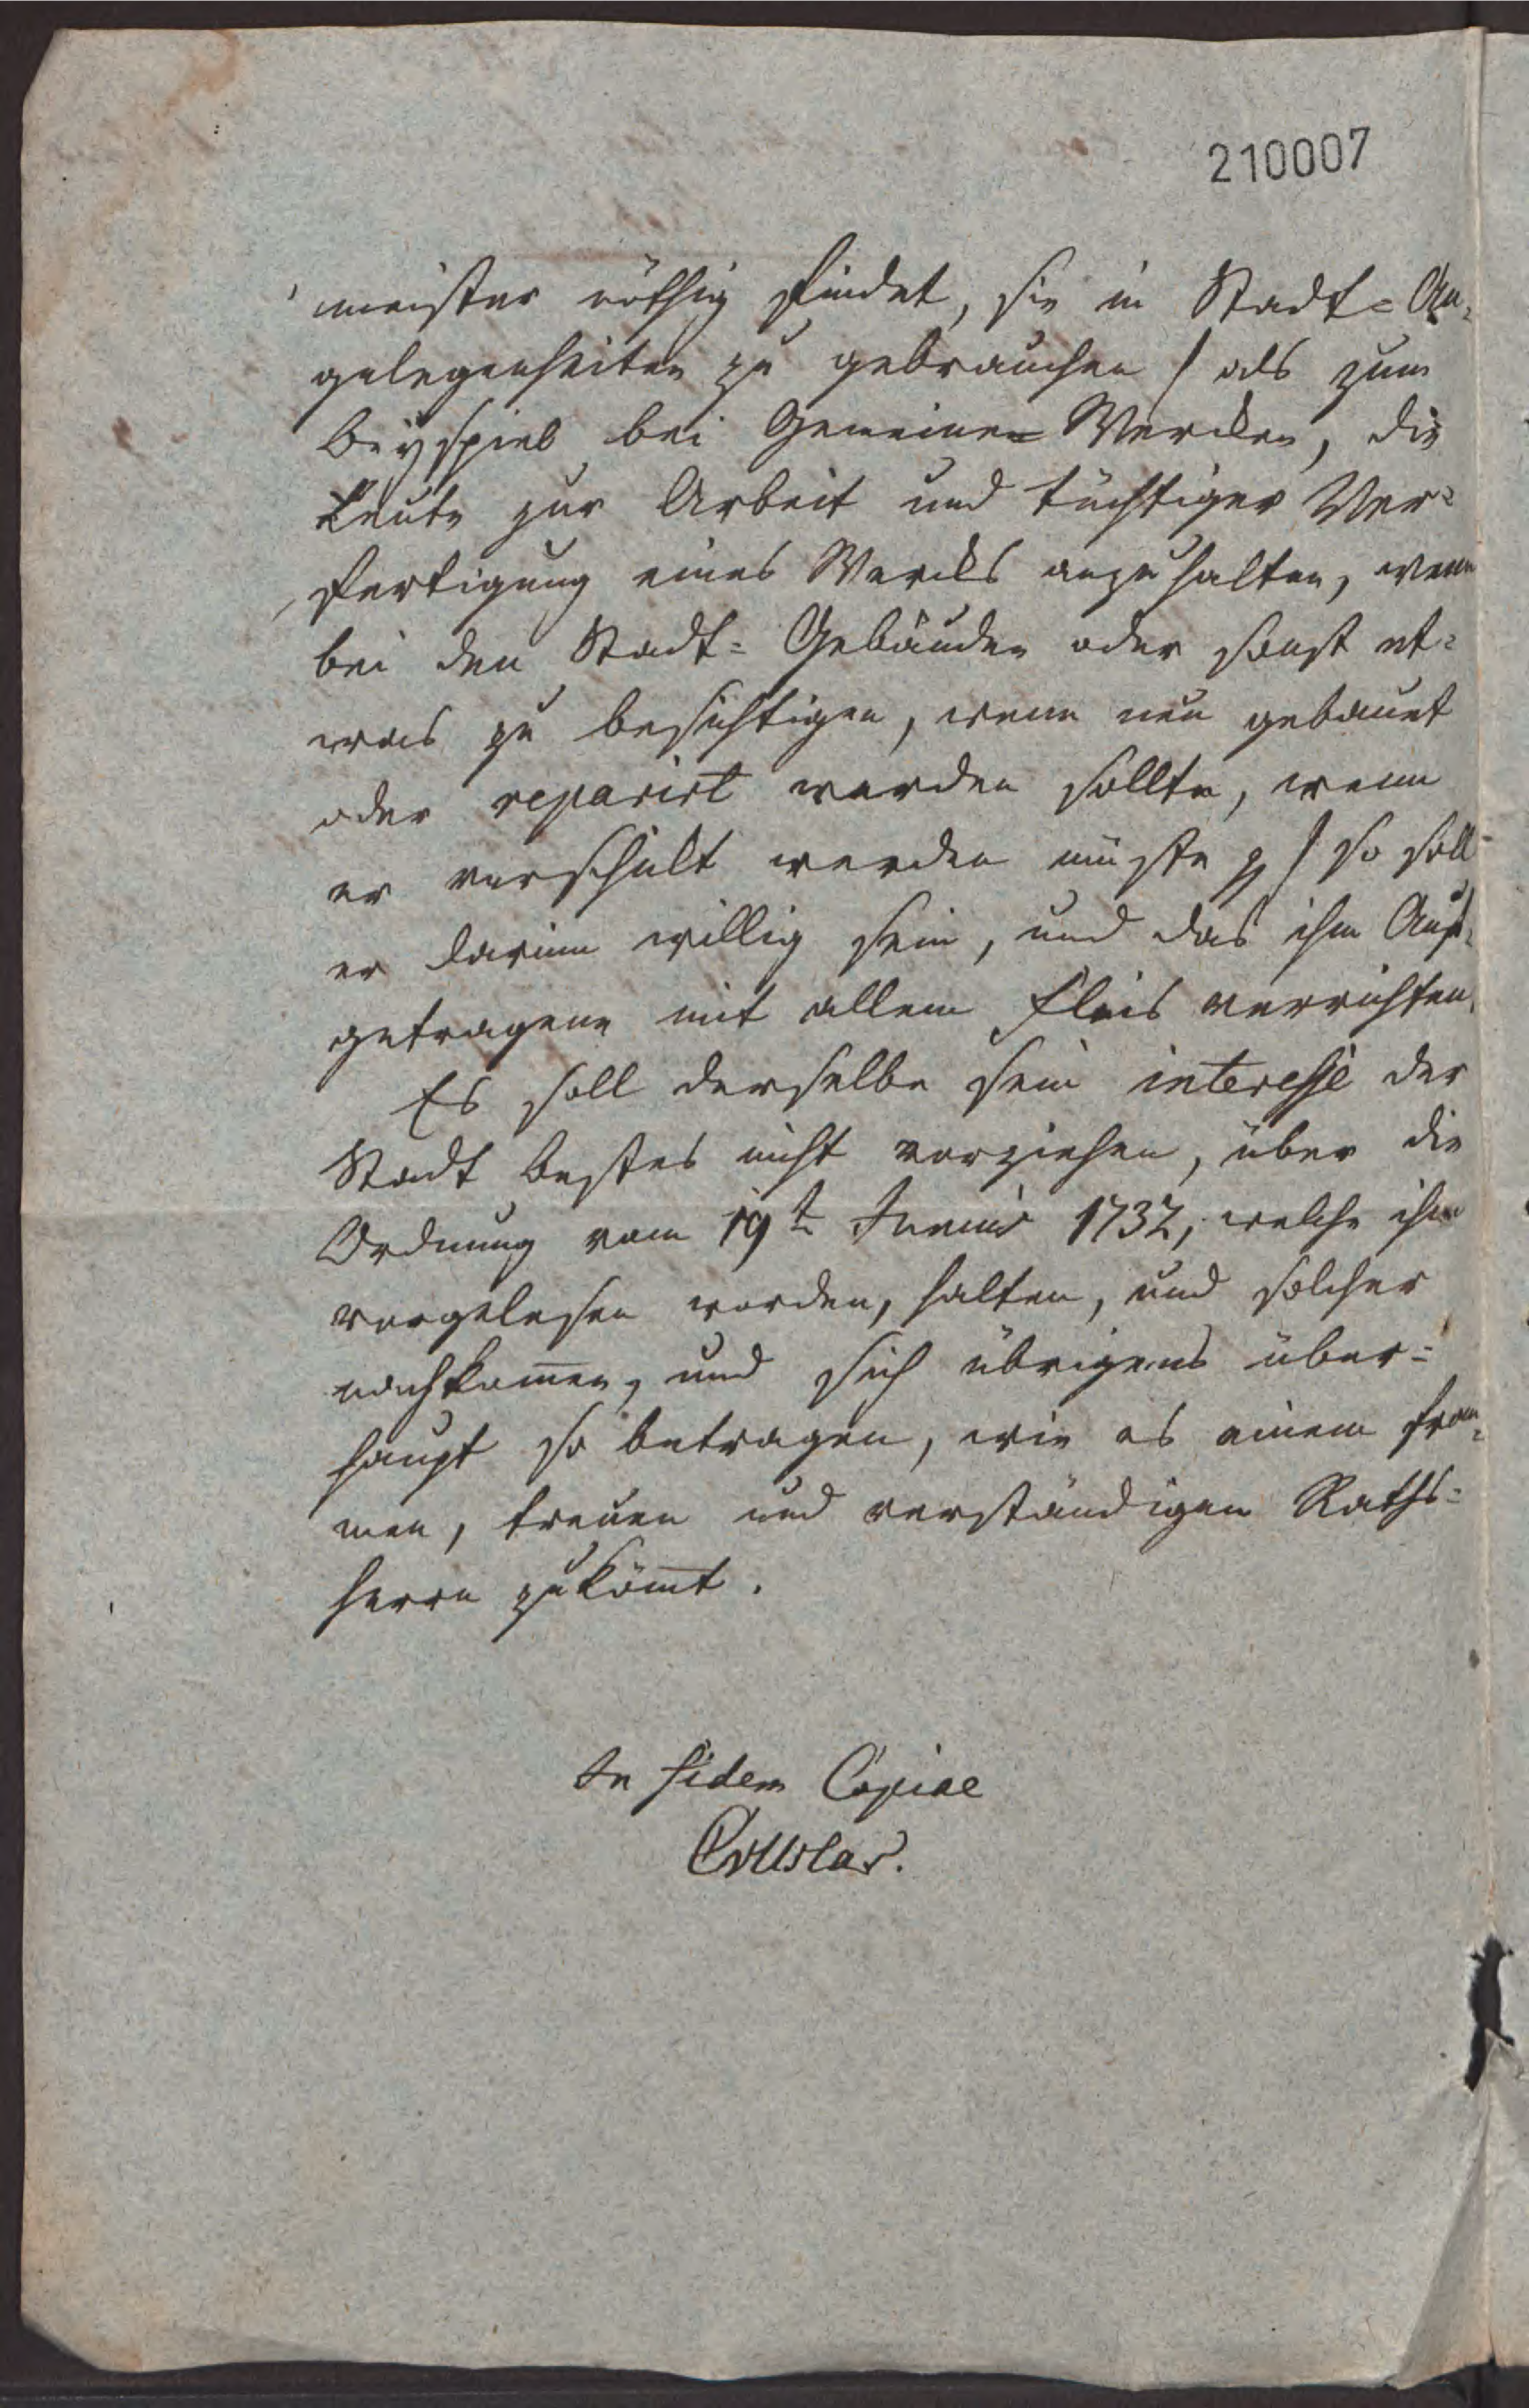 210007
meister nöthig findet, sie in Stadt-An-
gelegenheiten zu gebrauchen / als zum
Beyspiel bei Gemeinen Wercken, die
Leute zur Arbeit und tüchtiger Ver-
fertigung eines Wercks anzuhalten, wenn
bei den Stadt-Gebäuden oder sonst et-
was zu besichtigen, wenn neu gebauet
oder reparirt werden sollte, wenn
er verschickt werden müste pp / so soll
er darinn willig sein, und das ihm Auf-
getragene mit allem Fleis verrichten.
Es soll derselbe sein interesse der
Stadt Bestes nicht vorziehen, über die
Ordnung vom 19t Junius 1732, welche ihm
vorgelesen worden, halten, und solcher
nachkom̄en, und sich übrigens über-
haupt so betragen, wie es einem from-
men, treuen und verständigen Raths-
herrn zuköm̄t.
In fidem Copiae